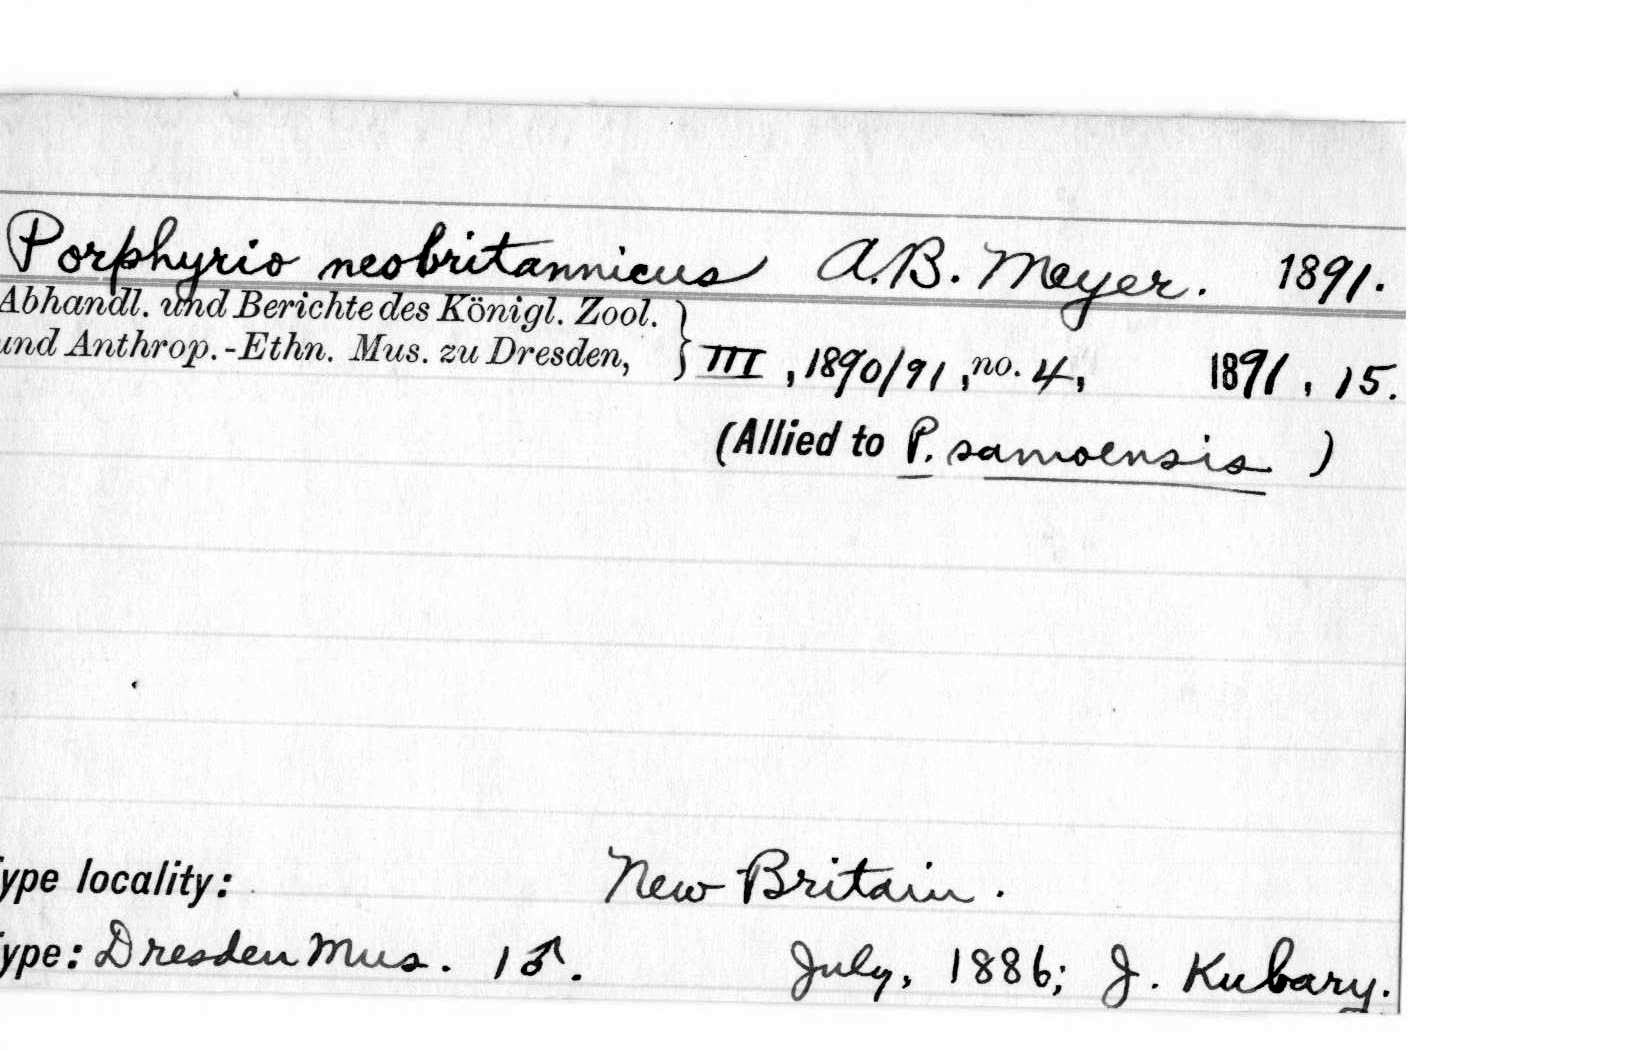 Porphyrio neobritannicus A.B. Meyer. 1891.
Abhandl. und Berichte des Königl. Zool.
und Anthrop.-Ethn. Mus. zu Dresden, } III, 1890/91, no. 4, 1891, 15.
(Allied to P. samoensis )
ype locality: New Britain.
ype: Dresden Mus. 1♂. July, 1886; J. Kubary.